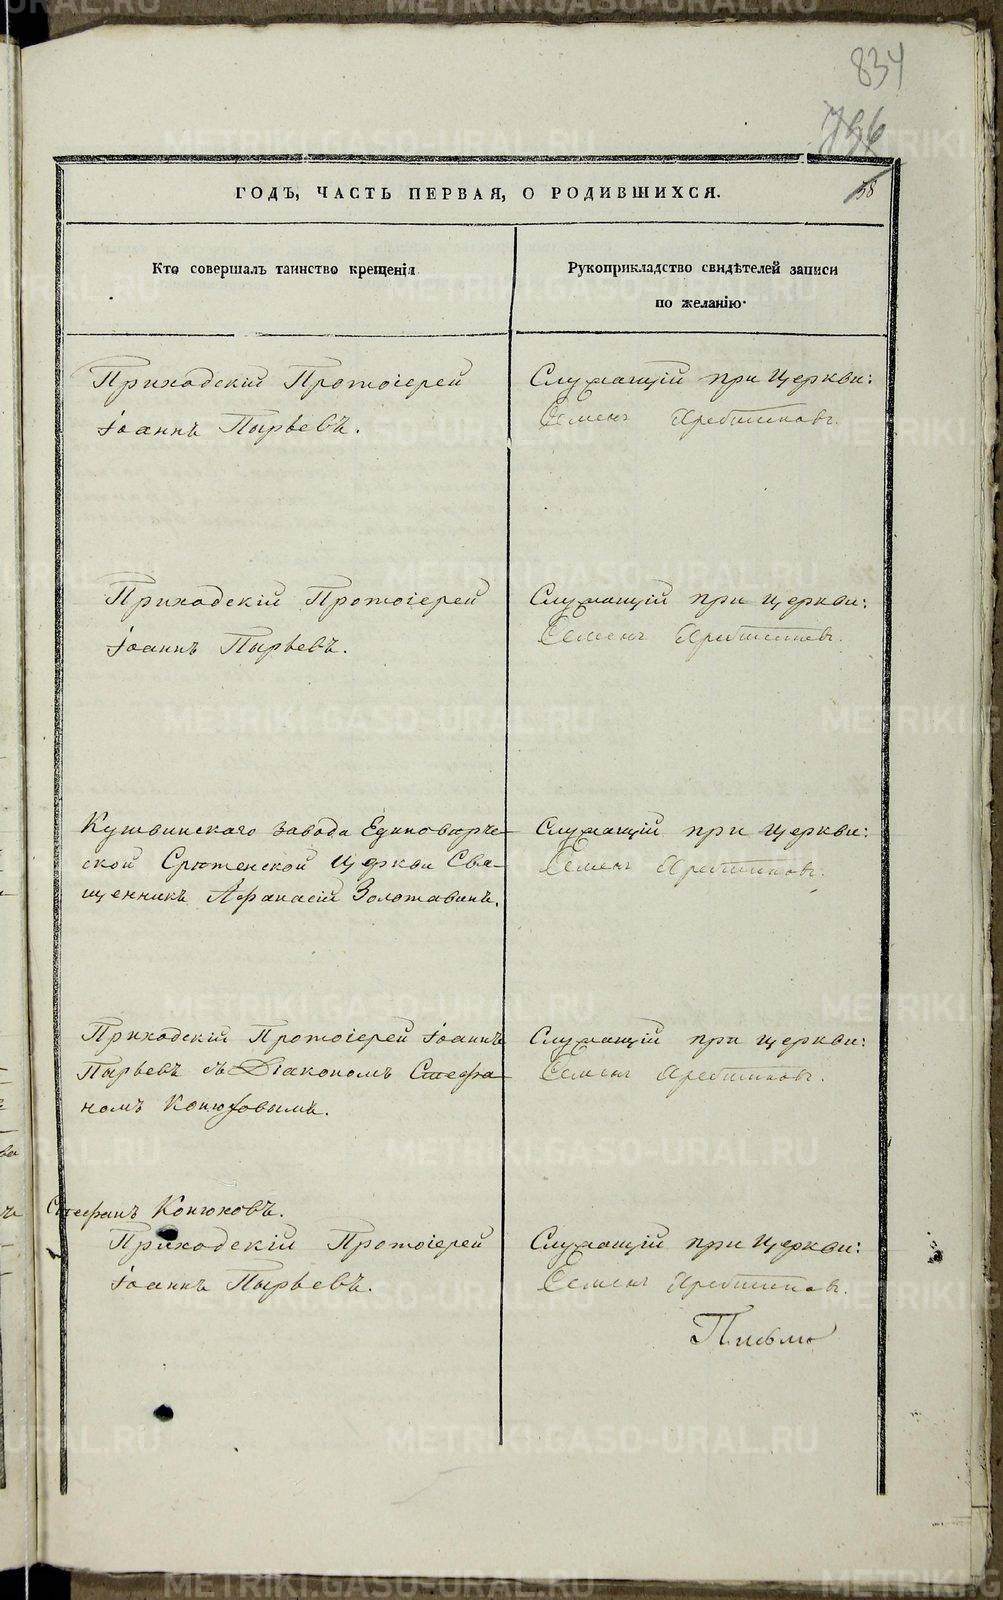 834
756
58
ГОДЪ, ЧАСТЬ ПЕРВАЯ, О РОДИВШИХСЯ.
Кто совершалъ таинство крещенія.
Рукоприкладство свидѣтелей записи
по желанію.
Приходскій Протоіерей
Іоаннъ Пырьевъ.
Служащій при Церкви:
Семенъ
Приходскій Протоіерей
Іоаннъ Пырьевъ.
Служащій при Церкви:
Семенъ
Кушвинскаго завода Единоверче-
ской Срютенской Церкви Свя-
щенникъ Афанасій Золотавинъ.
Служащій при Церкви:
Семенъ
Приходскій Протоіерей Іоаннъ
Пырьевъ съ Діакономъ Стефа-
номъ Конюховымъ.
Служащій при Церкви:
Семенъ
Стефанъ Конюховъ.
Приходскій Протоіерей
Іоаннъ Пырьевъ.
Служащій при Церкви:
Семенъ
METRIKI.GASO-URAL.RU